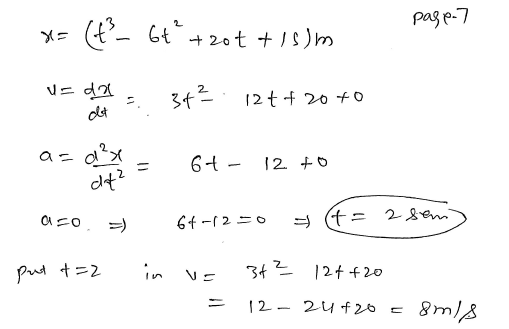 page-7
x = (t³ - 6t² + 20t + 15)m
v = dx/dt = 3t² - 12t + 20 + 0
a = d²x/dt² = 6t - 12 + 0
a=0 ⇒ 6t-12=0 ⇒ t = 2
put t=2 in v = 3t² - 12t + 20
= 12 - 24 + 20 = 8m/s